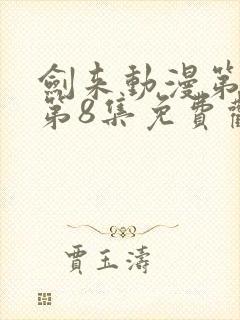 劍来動漫第
第8集免費
賈玉濤